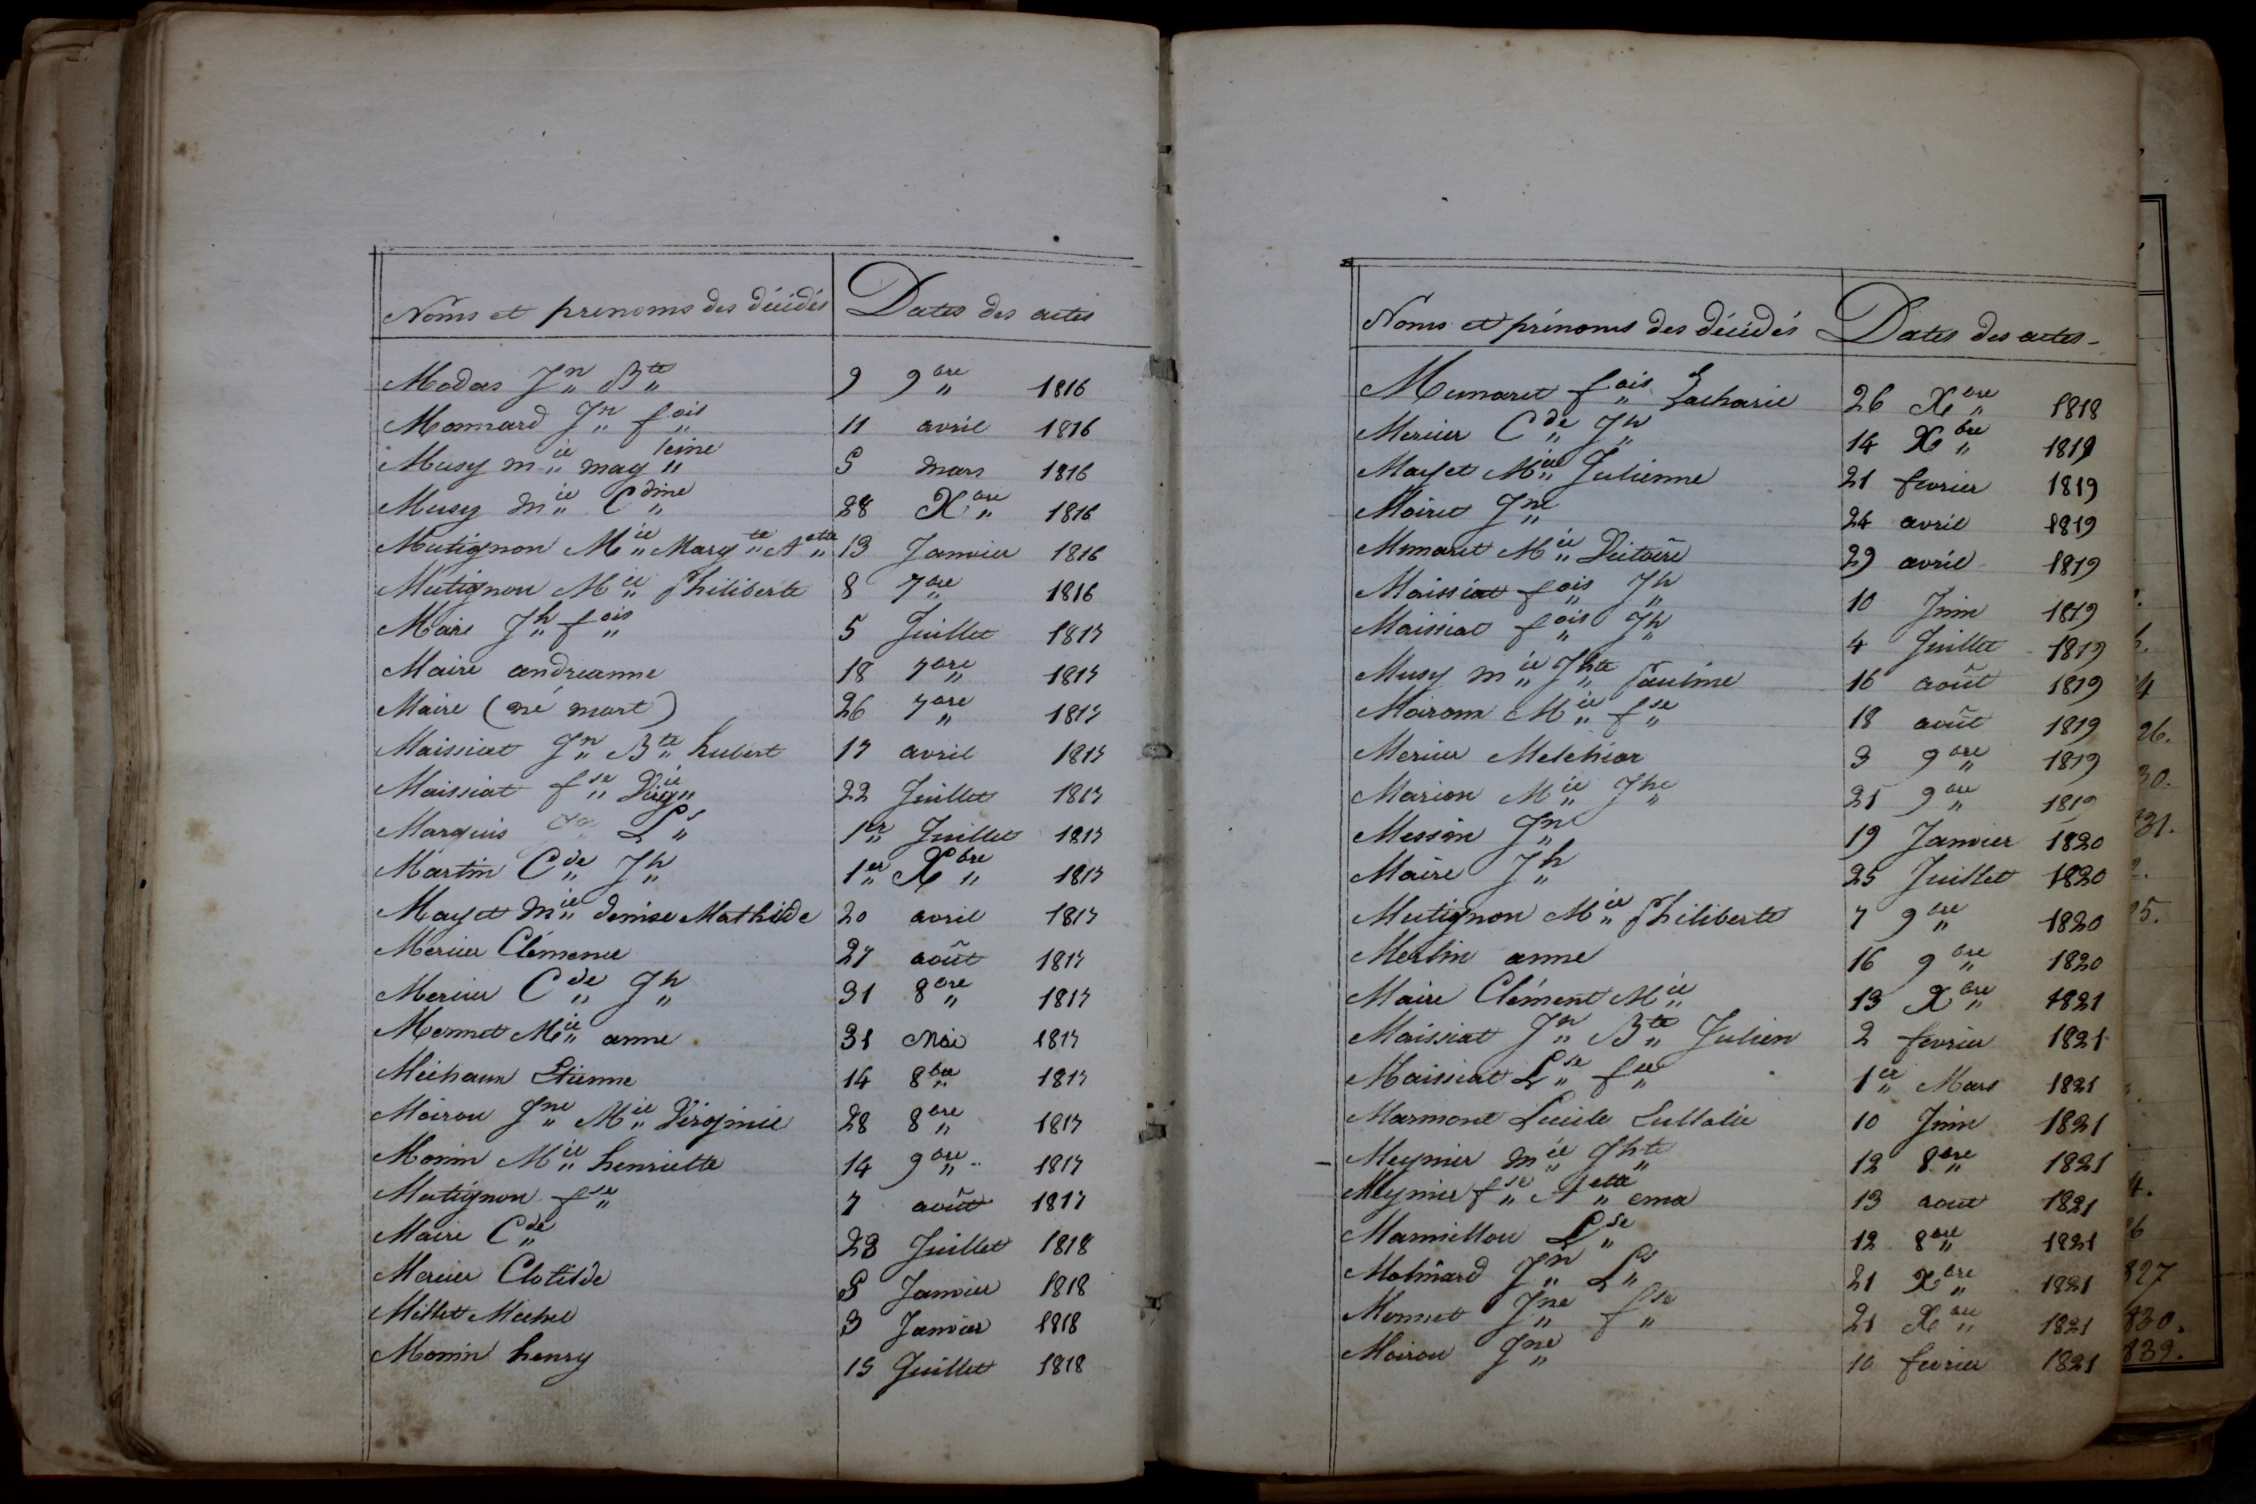 Noms et prenoms des décédés Dates des actes
Modas Jn Bte 9 9bre 1816
Monnard Jn fois 11 avril 1816
Musy mie mag leine 5 mars 1816
Musy mie Cdine 28 Xbre 1816
Mutignon Mie Margte Aette 13 Janvier 1816
Mutignon Mie Philiberte 8 7bre 1816
Maire Jh fois 5 Juillet 1817
Maire andreanne 18 7bre 1817
Maire (né mort) 26 7bre 1817
Maissiat Jn Bte hubert 17 avril 1817
Maissiat fse Virgie 22 Juillet 1817
Marquis Ls 1er Juillet 1817
Martin Cde Jh 1er Xbre 1817
Mayet Mie denise Mathilde 20 avril 1817
Mercier Clémence 27 août 1817
Mercier Cde Jh 31 8bre 1817
Mermet Mie anne 31 Mai 1817
Méchaux Etienne 14 8bre 1817
Moirou Jne Mie Virginie 28 8bre 1817
Monin Mie henriette 14 9bre 1817
Mutignon fse 7 août 1817
Maire Cde 23 Juillet 1818
Mercier Clotilde 5 Janvier 1818
Millet Michel 3 Janvier 1818
Monin henry 15 Juillet 1818
Noms et prénoms des décédés Dates des actes
Mumaret fois Zacharie 26 Xbre 1818
Mercier Cde Jh 14 Xbre 1819
Mayet Mie Julienne 21 fevrier 1819
Moiret Jne 24 avril 1819
Mumaret Mie Victoire 29 avril 1819
Maissiat fois Jh 10 Juin 1819
Maissiat fois Jh 4 Juillet 1819
Musy mie Jhte Pauline 16 août 1819
Moirom Mie fse 18 août 1819
Mercier Melchior 3 9bre 1819
Marion Mie Jhe 21 9bre 1819
Messin Jn 19 Janvier 1820
Maire Jh 25 Juillet 1820
Mutignon Mie Philiberte 7 9bre 1820
Merlin anne 16 9bre 1820
Maire Clément Mie 13 Xbre 1821
Maissiat Jn Bte Julien 2 fevrier 1821
Maissiat Lse fse 1er Mars 1821
Marmont Lucile Eullalie 10 Juin 1821
Meynier mie Jhte 12 8bre 1821
Meynier fse Aette ema 13 aout 1821
Marmillou Lse 12 8bre 1821
Molinard Jn Ls 21 Xbre 1821
Monnet Jne fse 21 Xbre 1821
Moirou Jne 10 fevrier 1821
4
26.
30.
31.
25.
4.
26
827
830.
839.